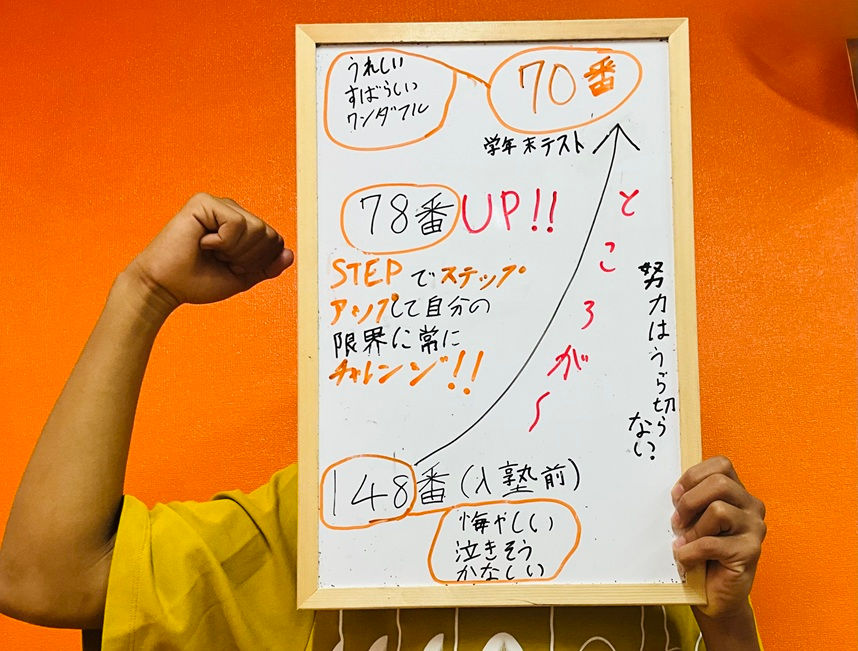 うれしい
すばらしい
ワンダフル
70番
学年末テスト
78番UP!!
STEPでステップ
アップして自分の
限界に常に
チャレンジ!!
ところが〜
努力はうら切ら
ない
148番(入塾前)
悔やしい
泣きそう
かなしい